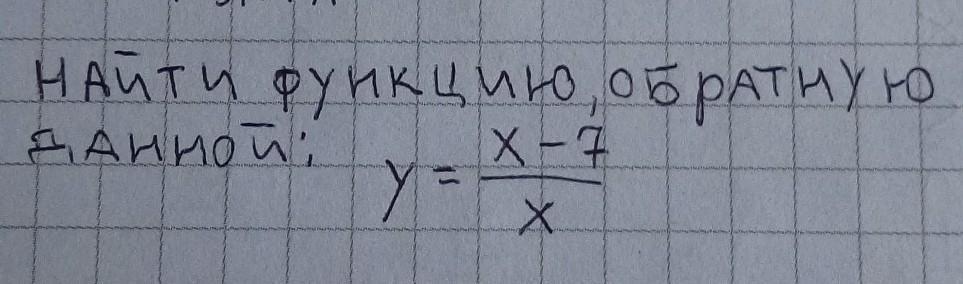 НАЙТИ ФУНКЦИЮ, ОБРАТНУЮ
ДАННОЙ: y = (x - 7) / x